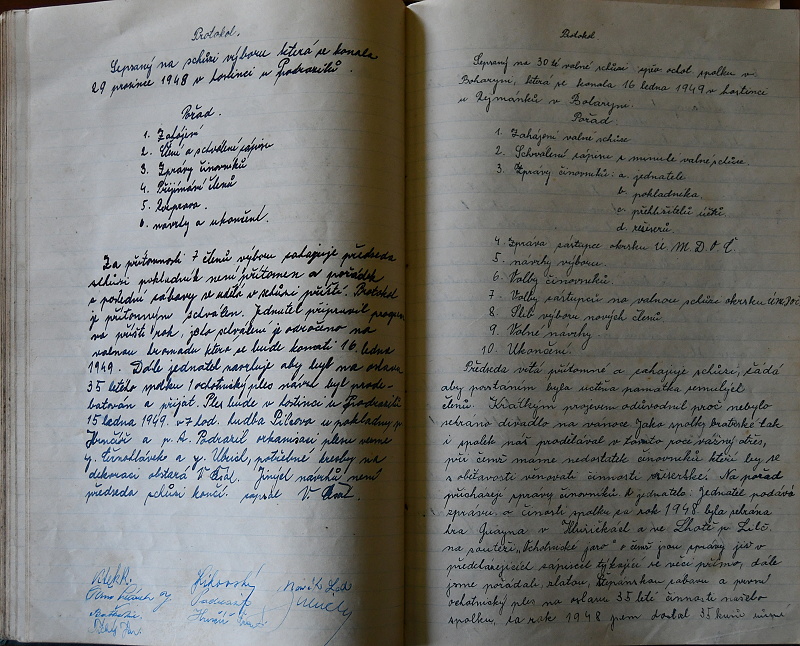 Protokol.
Sepsaný na schůzi výboru která se konala
29 prosince 1948 v hostinci u Podrazilů.
Pořad.
1. Zahájení
2. Čtení a schválení zápisu
3. Zprávy činovníků
4. Přijímání členů
5. Záprava
6. návrhy a ukončení.
Za přítomnosti 7 členů výboru zahajuje předseda
schůzi pokladník není přítomen a pořádek
s poslední zábavy v schůzi příští. Protokol
je přítomným schválen. Jednatel připravil program
na příští rok, jeho schválení je odročeno na
valnou hromadu která se bude konati 16. ledna
1949. Dále jednatel navrhuje aby byl na oslavu
35 letého spolku 1 ochotnický ples návrh byl prode-
batován a přijat. Ples bude v hostinci u Podrazilů
15 ledna 1949. v 7 hod. hudba Pilcova u pokladny p.
a p. A. Podrazil plesu
y. a y. potřebné kresby na
dekoraci obstará V. Král. Jiných návrhů není
předseda schůzi končí. zapsal V. Král.
Protokol
Sepsaný na 30 té valné schůzi ochot. spolku v
Boharyni, která se konala 16 ledna 1949 v hostinci
u Zejmánků v Boharyni.
Pořad:
1. Zahájení valné schůze
2. Schválení zápisu z minulé valné schůze.
3. Zprávy činovníků: a. jednatele
b. pokladníka,
c. přehlížitelů účtů.
d. režisérů.
4. Zpráva zástupce okrsku Ú. M. D. O. Č.
5. návrhy výboru.
6. Volby činovníků.
7. Volby zástupců na valnou schůzi okrsku
8. Slib výboru nových členů
9. Volné návrhy.
10. Ukončení.
Předseda vítá přítomné a zahajuje schůzi, žádá
aby povstáním byla uctěna památka zemřelých
členů. Krátkým projevem odůvodnil proč nebylo
sehráno divadlo na vánoce. Jako spolky bratrské tak
i spolek náš prodělával v tomto roce vážný otřes,
při čemž máme nedostatek činovníků kteří by se
s obětavostí věnovali činnosti režisérské. Na pořad
přicházejí zprávy činovníků. A jednatele: Jednatel podává
zprávu o činosti spolku za rok 1948 byla sehrána
hra v a ve Lhotě p. Lib.
na soutěži „Ochotnické jaro“ o čemž jsou zprávy již v
předcházejících zápisech týkající se věci přímo, dále
jsme pořádali zlatou, Štěpánskou zábavu a první
ochotnický ples na oslavu 35 leté činnosti našeho
spolku, za rok 1948 jsem dostal 35 kusů různé